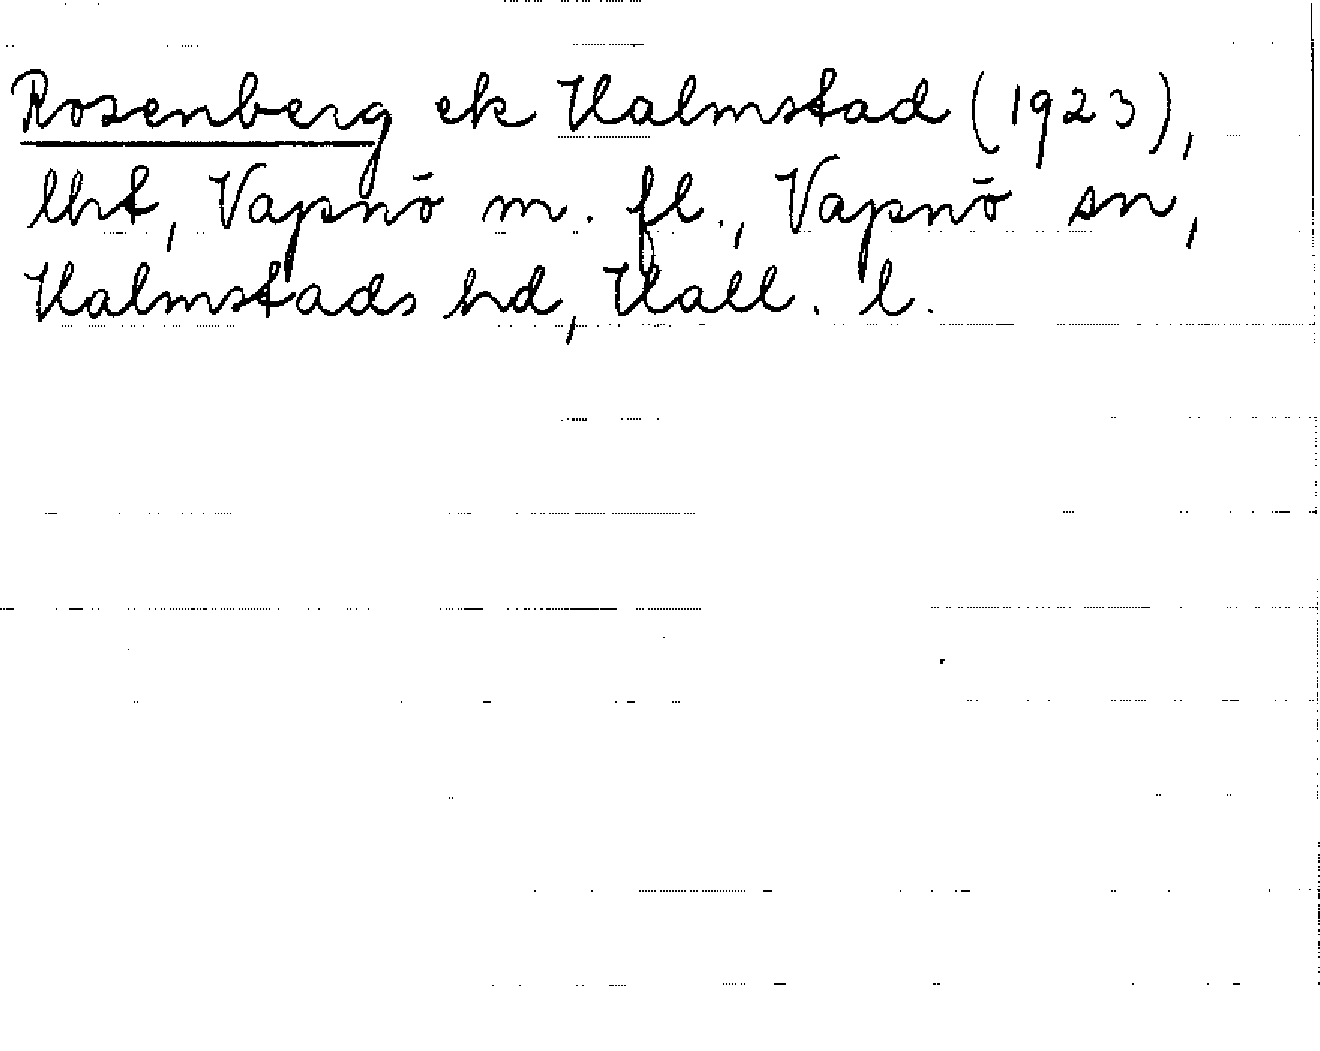 Rosenberg ek Halmstad (1923),
lht, Vapnö m. fl., Vapnö sn,
Halmstads hd, Hall. l.